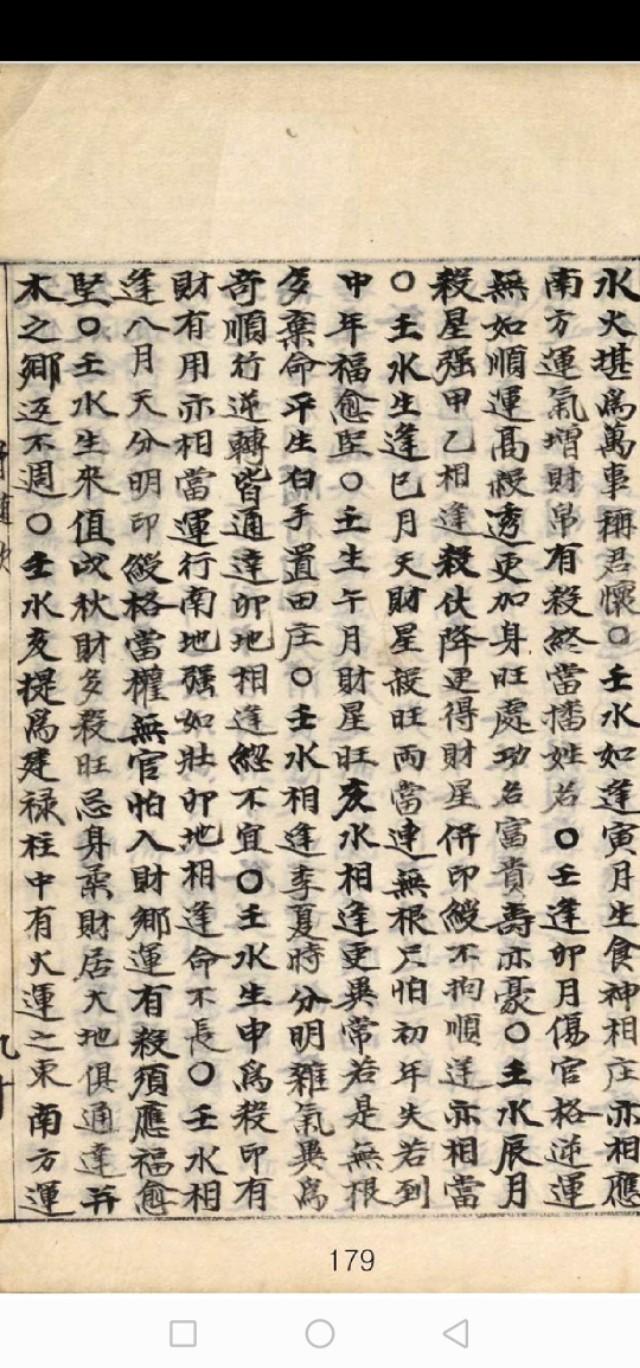 水火堪為萬事稱君懷〇壬水如逢寅月生食神相庄亦相應
南方運氣增財帛有殺終當播姓名〇壬逢卯月傷官格逆運
無如順運高殺透更加身旺處功名富貴壽亦豪〇壬水辰月
殺星强甲乙相逢殺伏降更得財星併印綬不拘順逆亦相當
〇壬水生逢巳月天財星殺旺両當連無根只怕初年失若到
申年福愈堅〇壬生午月財星旺亥水相逢更異常若是無根
多棄命平生白手置田庄〇壬水相逢季夏時分明雜氣異為
奇順行逆轉皆通達卯地相逢總不宜〇壬水生申為殺印有
財有用亦相當運行南地强如壯卯地相逢命不長〇壬水相
逢八月天分明印綬格當權無官怕入財鄉運有殺須應福愈
堅〇壬水生來值戌秋財多殺旺忌身柔財居大地俱通達弄
木之鄉返不周〇壬水亥提為建禄柱中有火運之東南方運
179